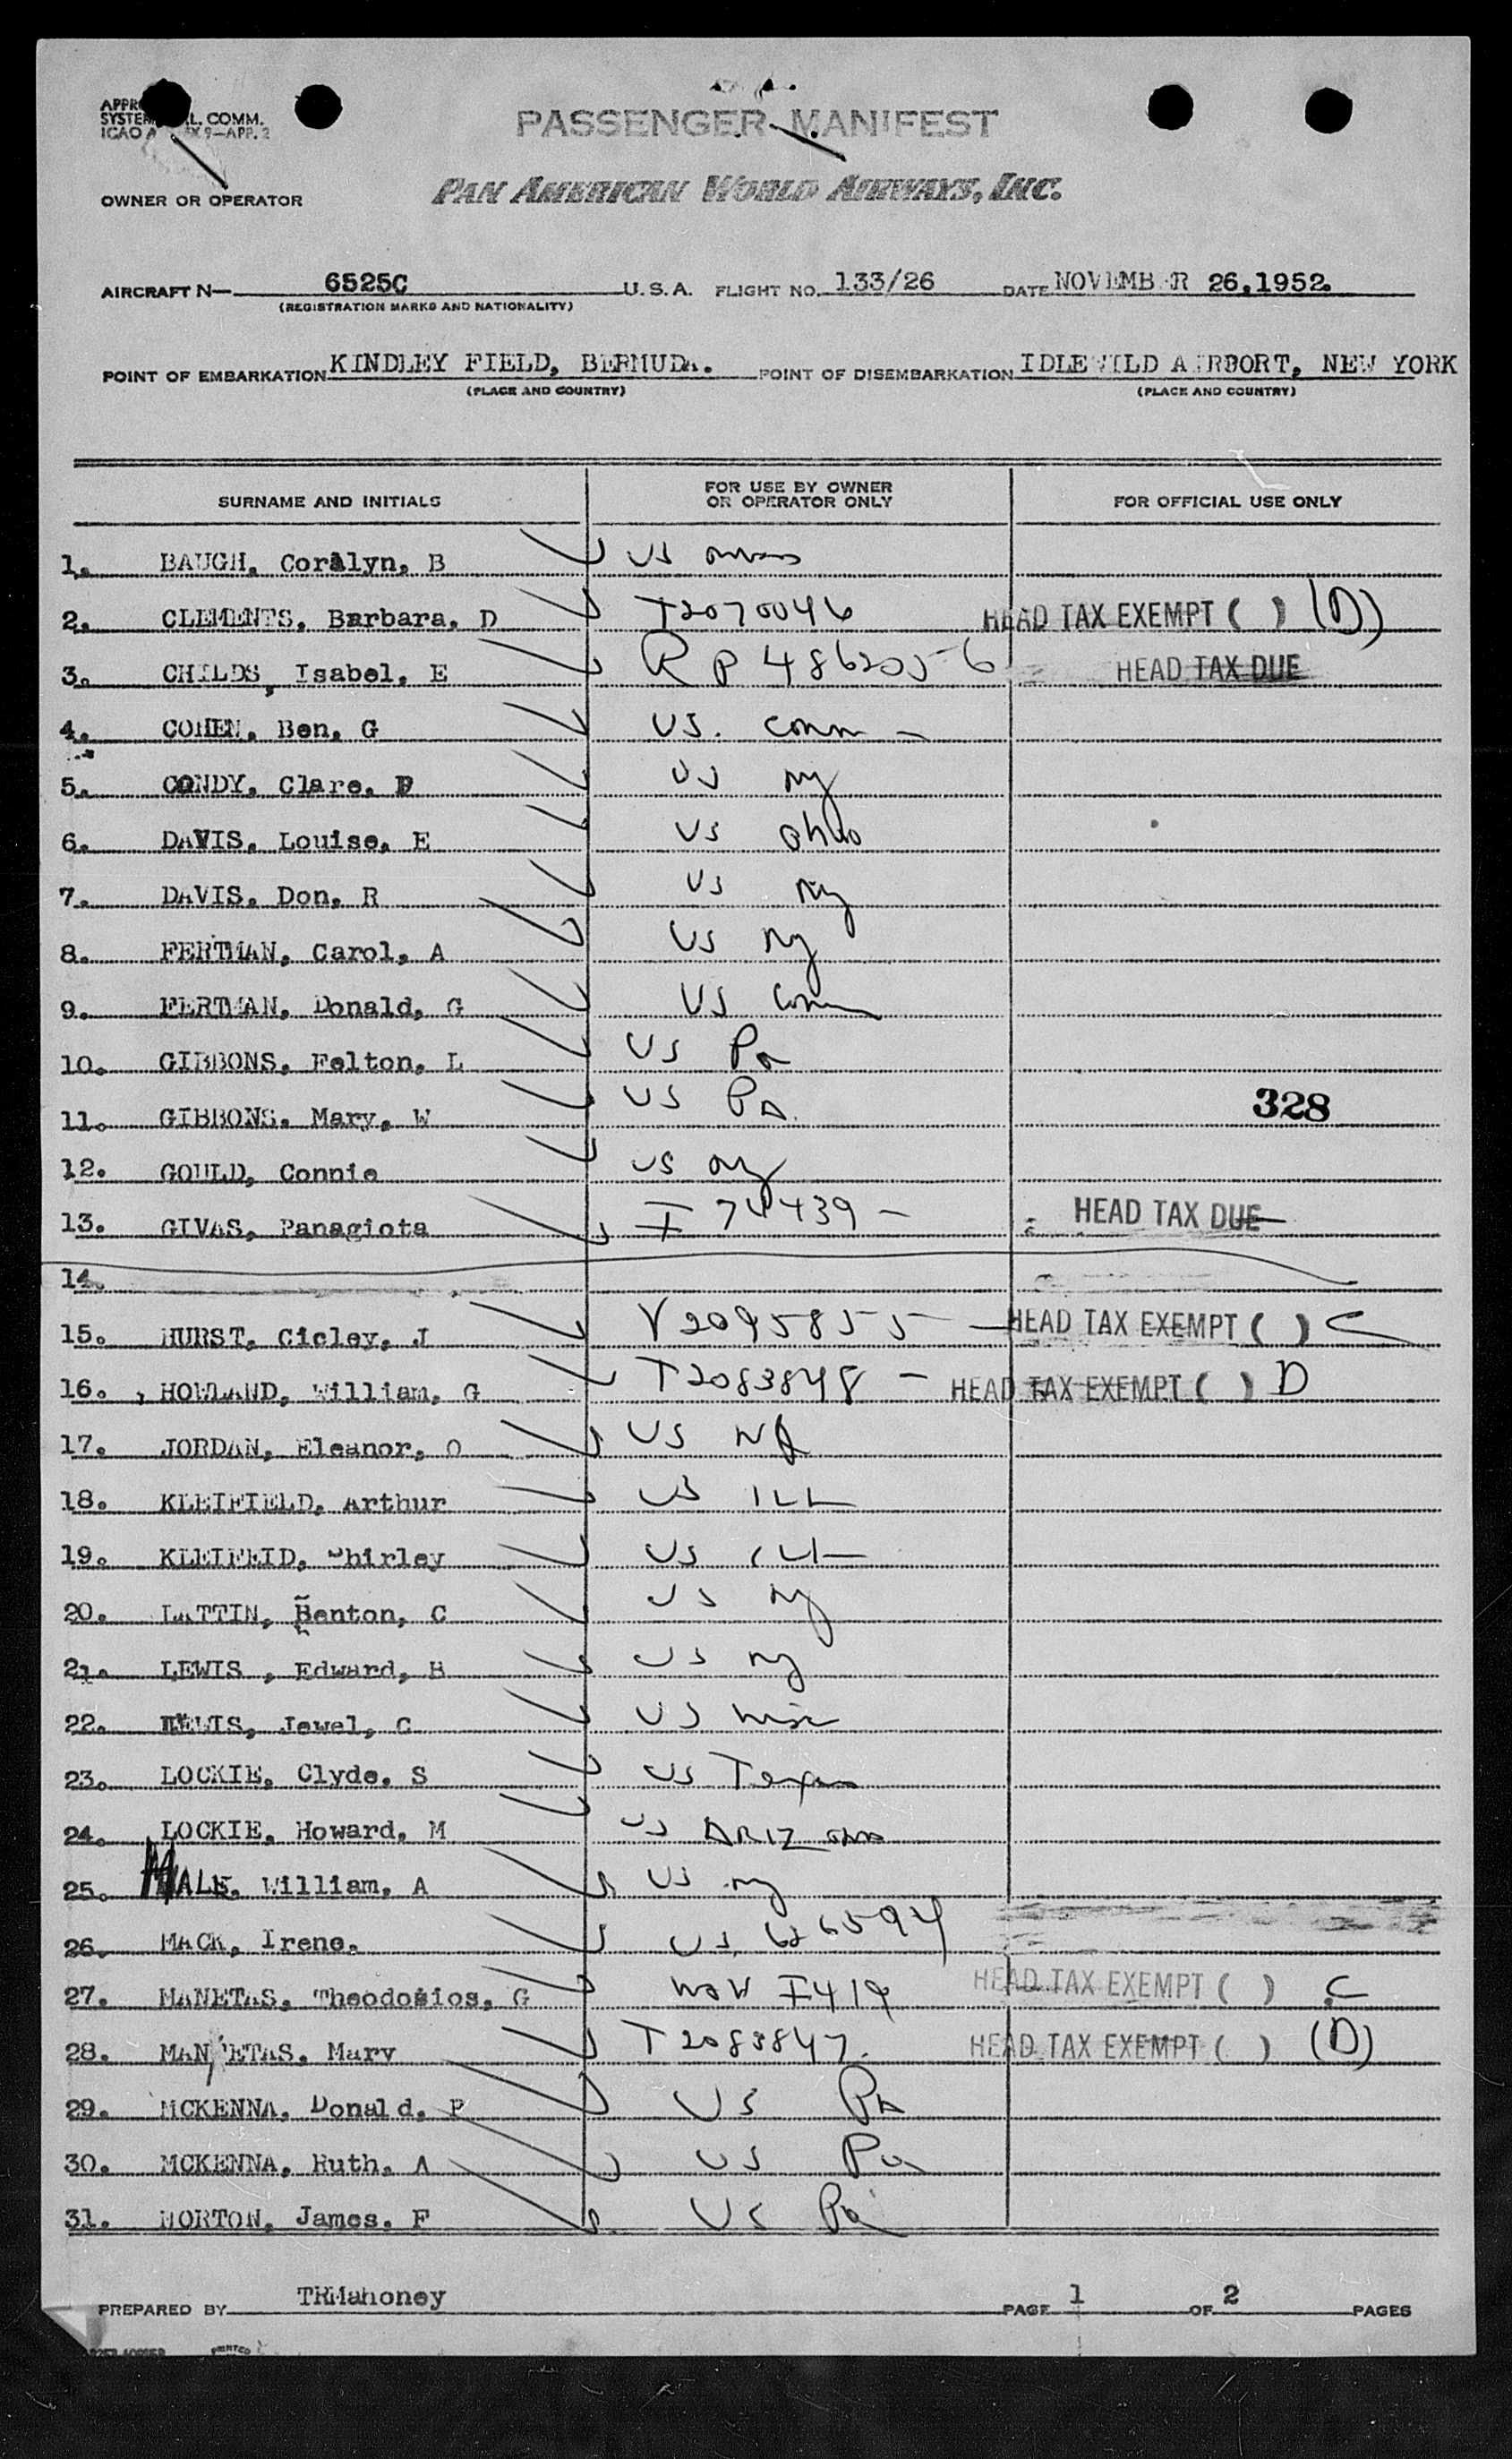 L. COMM.
ICAO
PASSENGER MANIFEST
OWNER OR OPERATOR
PAN AMERICAN WORLD AIRWAYS, INC.
AIRCRAFT N— 6525C U.S.A. FLIGHT NO. 133/26 DATE NOVEMB R 26,1952.
(REGISTRATION MARKS AND NATIONALITY)
POINT OF EMBARKATION KINDLEY FIELD, BERMUDA. POINT OF DISEMBARKATION IDLEWILD AIRPORT, NEW YORK
(PLACE AND COUNTRY) (PLACE AND COUNTRY)
SURNAME AND INITIALS FOR USE BY OWNER OR OPERATOR ONLY FOR OFFICIAL USE ONLY
1. BAUGH, Coralyn, B US
2. CLEMENTS, Barbara, D T2070046 HEAD TAX EXEMPT ( ) (D)
3. CHILDS, Isabel, E RP 4862056 HEAD TAX DUE
4. COHEN, Ben, G US. Conn
5. CONDY, Clare, F US ny
6. DAVIS, Louise, E US Ohio
7. DAVIS, Don, R US Ny
8. FERTMAN, Carol, A US Ny
9. FERTMAN, Donald, G US Conn
10. GIBBONS, Felton, L US Pa
11. GIBBONS, Mary, W US Pa. 328
12. GOULD, Connie US ny
13. GIVAS, Panagiota I 74439 — HEAD TAX DUE
14.
15. HURST, Cicley, J V2095855 — HEAD TAX EXEMPT ( ) C
16. HOWLAND, William, G T2083848 — HEAD TAX EXEMPT ( ) D
17. JORDAN, Eleanor, O US NJ
18. KLEIFIELD, Arthur US ILL
19. KLEIFEID, Shirley US ILL
20. LATTIN, Benton, C US ny
21. LEWIS , Edward, H US ny
22. LEWIS, Jewel, C US
23. LOCKIE, Clyde, S US Texas
24. LOCKIE, Howard, M US ARIZona
25. MALE, William, A US ny
26. MACK, Irene. US 626594
27. MANETAS, Theodosios, G I419 HEAD TAX EXEMPT ( ) C
28. MANETAS, Mary T2083847. HEAD TAX EXEMPT ( ) (D)
29. MCKENNA, Donald, P US Pa
30. MCKENNA, Ruth, A US Pa
31. NORTON, James, F US Pa
PREPARED BY TRMahoney PAGE 1 OF 2 PAGES